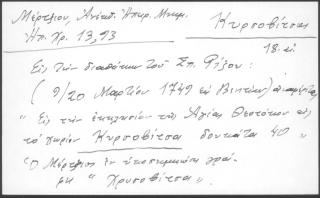 Μέρτζιου, Ἀνέκδ. Ἠπειρ. Μνημ.
Κυρποβίτσα
Ἠπ. Χρ. 13, 93
18. αἰ
Εἰς τὴν διαθήκην τοῦ Σπ. Ρίζου :
( 9/20 Μαρτίου 1749 ἐν Βενετίᾳ) ἀναφέρεται
" Εἰς τὴν ἐκκλησίαν τῆς Ἁγίας Θεοτόκου εἰς
τὸ χωρίον Κυρποβίτσα δουκάτα 40 "
Ὁ Μέρτζιος ἐν ὑποσημειώσει γράφ.
" Χρυσοβίτσα ".